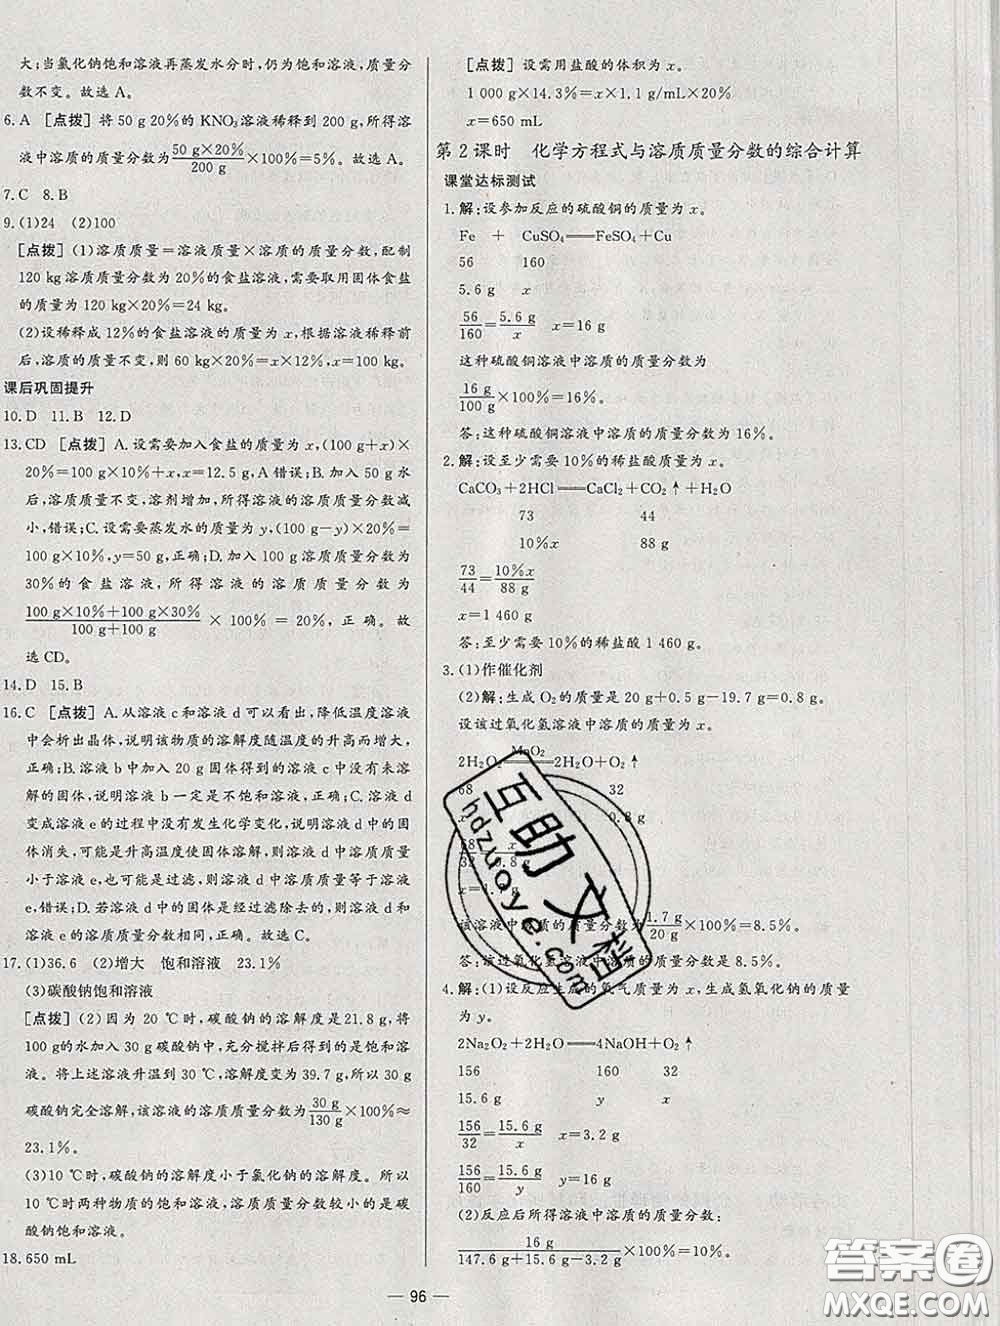 大;当氯化钠饱和溶液再蒸发水分时,仍为饱和溶液,质量分
数不变。故选 A。
6. A [点拨] 将 50 g 20%的 KNO₃溶液稀释到 200 g,所得溶
液中溶质的质量分数为 50 g×20%/200 g ×100%=5%。故选 A。
7. C 8. B
9. (1)24 (2)100
[点拨] (1)溶质质量=溶液质量×溶质的质量分数,配制
120 kg溶质质量分数为 20%的食盐溶液,需要取用固体食盐
的质量为 120 kg×20%=24 kg。
(2)设稀释成12%的食盐溶液的质量为 x,根据溶液稀释前
后,溶质的质量不变,则 60 kg×20%=x×12%,x=100 kg。
课后巩固提升
10. D 11. B 12. D
13. CD [点拨] A. 设需要加入食盐的质量为 x,(100 g+x)×
20%=100 g×10%+x,x=12.5 g,A 错误;B. 加入 50 g 水
后,溶质质量不变,溶剂增加,所得溶液的溶质质量分数减
小,错误;C. 设需要蒸发水的质量为 y,(100 g-y)×20%=
100 g×10%,y=50 g,正确;D. 加入 100 g 溶质质量分数为
30%的食盐溶液,所得溶液的溶质质量分数为
100 g×10%+100 g×30%/100 g+100 g ×100%=20%,正确。故
选 CD。
14. D 15. B
16. C [点拨] A. 从溶液 c 和溶液 d 可以看出,降低温度溶液
中会析出晶体,说明该物质的溶解度随温度的升高而增大,
正确;B. 溶液 b 中加入 20 g 固体得到的溶液 c 中没有未溶
解的固体,说明溶液 b 一定是不饱和溶液,正确;C. 溶液 d
变成溶液 e 的过程中没有发生化学变化,说明溶液 d 中的固
体消失,可能是升高温度使固体溶解,则溶液 d 中溶质质量
小于溶液 e,也可能是过滤,则溶液 d 中溶质质量等于溶液
e,错误;D. 若溶液 d 中的固体是经过滤除去的,则溶液 d 和
溶液 e 的溶质质量分数相同,正确。故选 C。
17. (1)36.6 (2)增大 饱和溶液 23.1%
(3)碳酸钠饱和溶液
[点拨] (2)因为 20 ℃时,碳酸钠的溶解度是21.8 g,将
100 g的水加入 30 g 碳酸钠中,充分搅拌后得到的是饱和溶
液。将上述溶液升温到 30 ℃,溶解度变为 39.7 g,所以 30 g
碳酸钠完全溶解,该溶液的溶质质量分数为 30 g/130 g ×100%≈
23.1%。
(3)10 ℃时,碳酸钠的溶解度小于氯化钠的溶解度。所以
10 ℃时两种物质的饱和溶液,溶质质量分数较小的是碳
酸钠饱和溶液。
18. 650 mL
[点拨] 设需用盐酸的体积为 x。
1 000 g×14.3%=x×1.1 g/mL×20%
x=650 mL
第 2 课时 化学方程式与溶质质量分数的综合计算
课堂达标测试
1. 解:设参加反应的硫酸铜的质量为 x。
Fe + CuSO₄══FeSO₄+Cu
56 160
5.6 g x
56/160=5.6 g/x x=16 g
这种硫酸铜溶液中溶质的质量分数为
16 g/100 g×100%=16%。
答:这种硫酸铜溶液中溶质的质量分数为 16%。
2. 解:设至少需要 10%的稀盐酸质量为 x。
CaCO₃+2HCl══CaCl₂+CO₂↑+H₂O
73 44
10%x 88 g
73/44=10%x/88 g
x=1 460 g
答:至少需要 10%的稀盐酸 1 460 g。
3. (1)作催化剂
(2)解:生成 O₂的质量是 20 g+0.5 g-19.7 g=0.8 g。
设该过氧化氢溶液中溶质的质量为 x。
2H₂O₂ MnO₂══2H₂O+O₂↑
68 32
x 0.8 g
68/32=x/0.8 g
x=1.7 g
该溶液中溶质的质量分数为 1.7 g/20 g×100%=8.5%。
答:该过氧化氢溶液中溶质的质量分数是 8.5%。
4. 解:(1)设反应生成的氧气质量为 x,生成氢氧化钠的质量
为 y。
2Na₂O₂+2H₂O══4NaOH+O₂↑
156 160 32
15.6 g y x
156/32=15.6 g/x x=3.2 g
156/160=15.6 g/y y=16 g
(2)反应后所得溶液中溶质的质量分数:
16 g/147.6 g+15.6 g-3.2 g×100%=10%。
— 96 —
互助文档
hdzuoye.com
答案圈
MXQE.COM